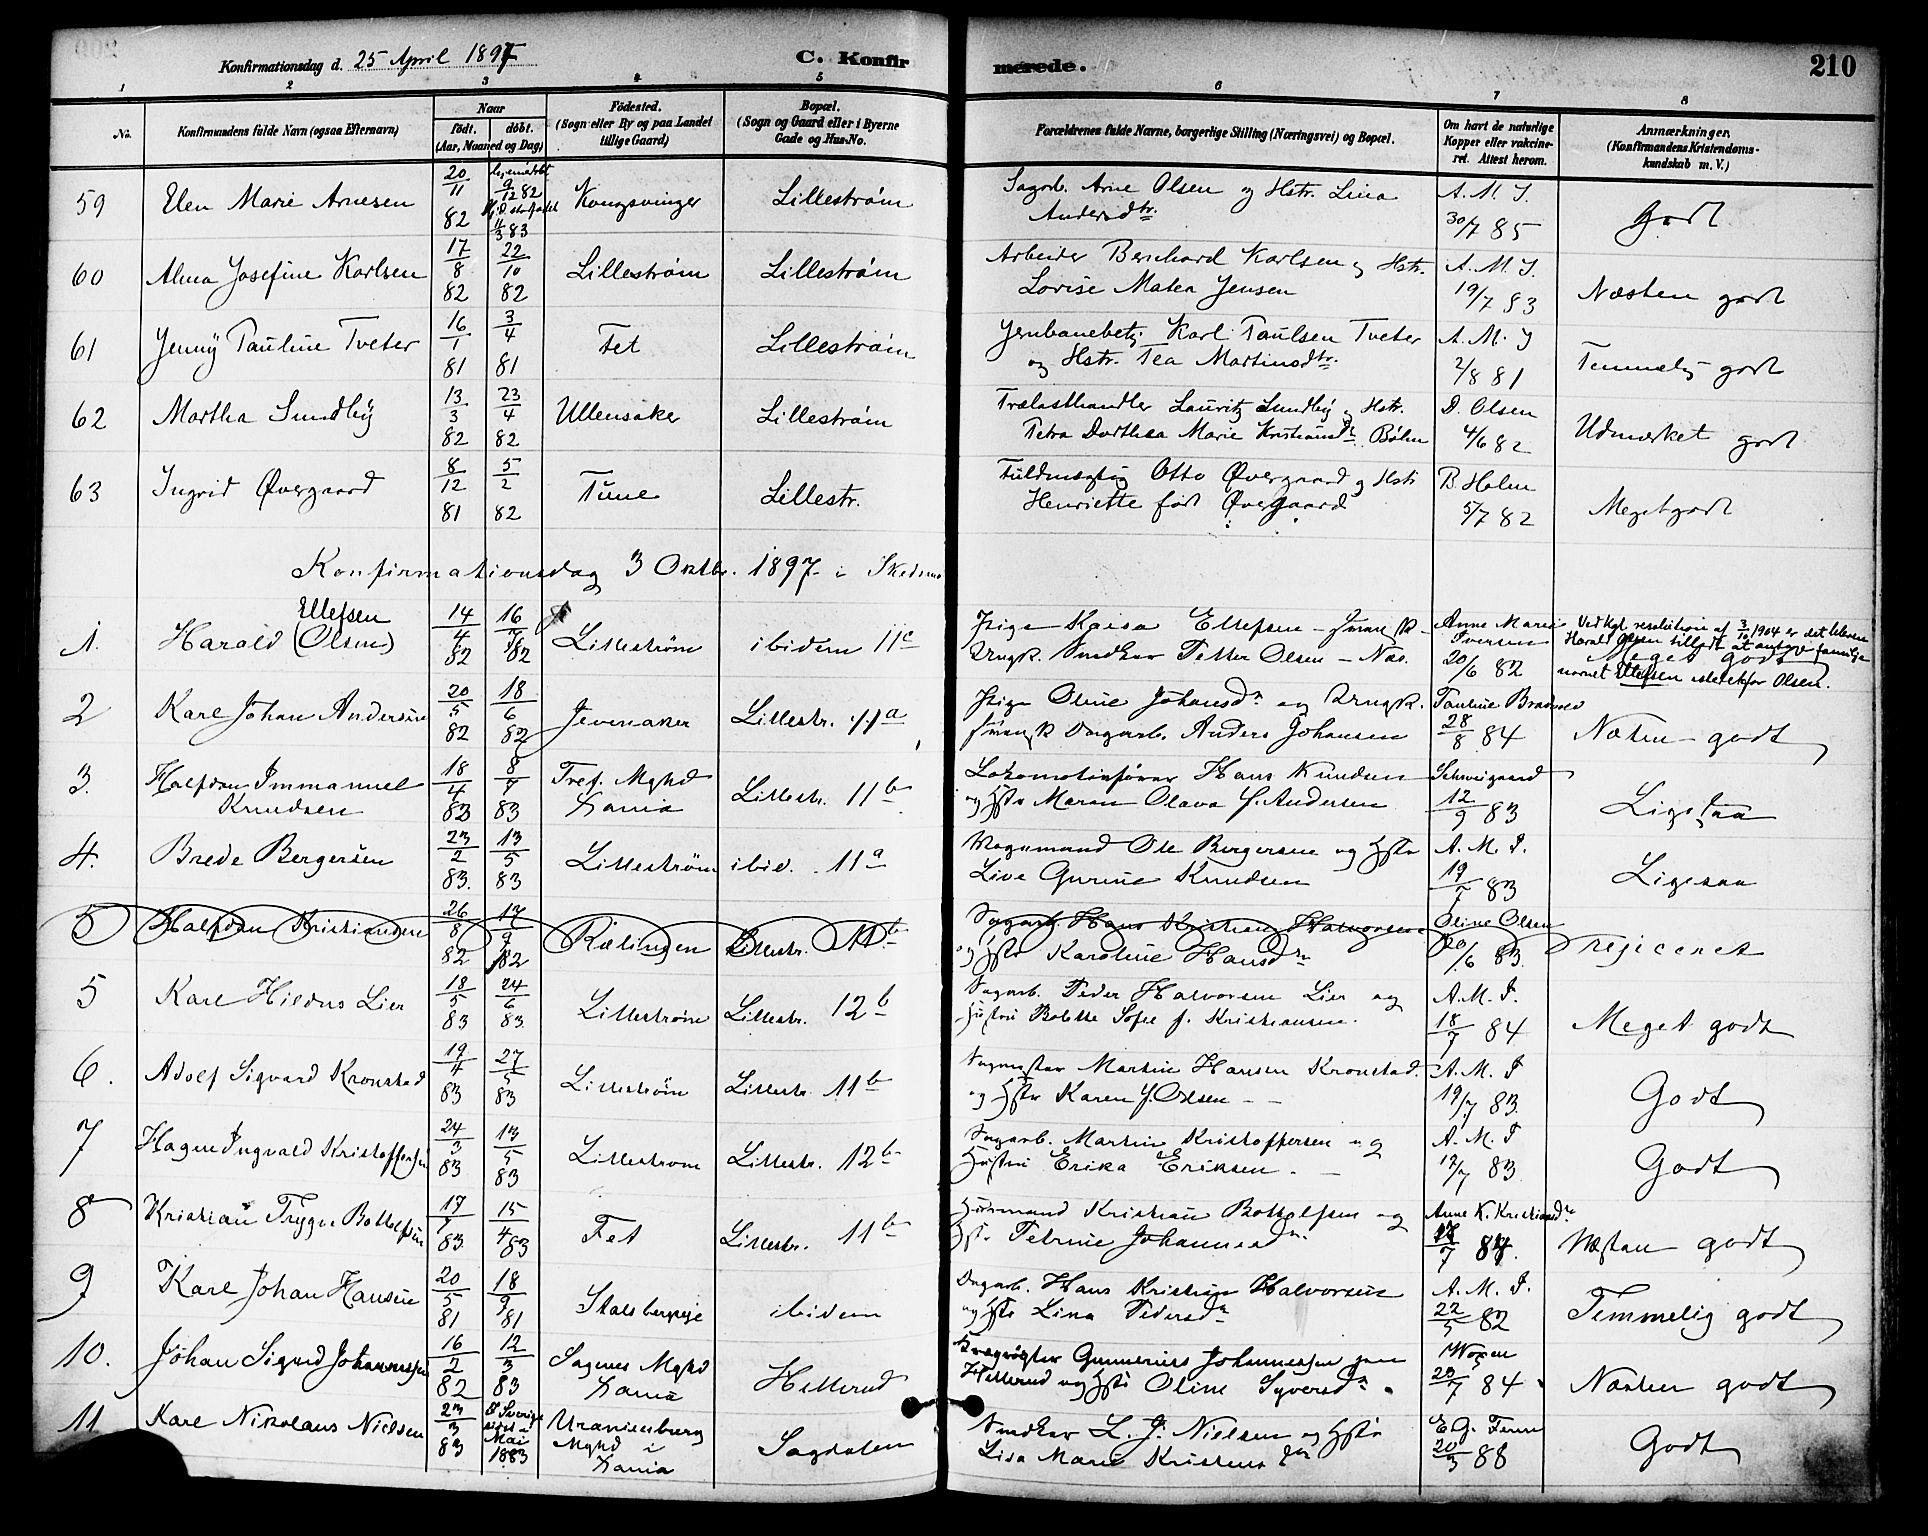 Konfirmationsdag d. 25 April 1897 C. Konfirmerede. 210
1 2 3 4 5 6 7 8
No. Konfirmandens fulde Navn (ogsaa Efternavn) Naar født. døbt. (Aar, Maaned og Dag) Fødested. (Sogn eller By og paa Landet tillige Gaard) Bopæl. (Sogn og Gaard eller i Byerne Gade og Hus-No. Forældrenes fulde Navne, borgerlige Stilling (Næringsvei) og Bopæl. Om havt de naturlige Kopper eller vaccineret. Attest herom. Anmærkninger. (Konfirmandens Kristendomskundskab m. V.)
59 Elen Marie Arnesen 20/11 82 hjemmedøbt 9/12 82 11/3 83 Kongsvinger Lillestrøm Sagarb. Arne Olsen og Hstr. Lina Andersdtr. A. M. I. 30/7 85 Godt
60 Alma Josefine Karlsen 17/8 82 22/10 82 Lillestrøm Lillestrøm Arbeider Bernhard Karlsen og Hstr. Lovise Matea Jensen A. M. I. 19/7 83 Næsten godt
61 Jenny Pauline Tveter 16/1 81 3/4 81 Fet Lillestrøm Jernbanebetj. Karl Paulsen Tveter og Hstr. Tea Martinsdtr. A. M. I 2/8 81 Temmelig godt
62 Martha Sundby 13/3 82 23/4 82 Ullensaker Lillestrøm Trælasthandler Lauritz Sundby og Hstr. Petra Dorthea Marie Kristiansdtr. Bølm D. Olsen 4/6 82 Udmærket godt
63 Ingrid Øvergaard 8/12 81 5/2 82 Tune Lillestr. Fuldmægtig Otto Øvergaard og Hstr Henriette født Øvergaard B. Holm 5/7 82 Meget godt
Konfirmationsdag 3 Oktbr. 1897 i Skedsmo
1. Harald Ellefsen (Olsen) 14/4 82 16/7 82 Lillestrøm ibidem 11c Pige Kaisa Ellefsen - svensk - Ungk. Snedker Petter Olsen - Næs. Anne Marie Iversen 20/6 82 Meget godt
Ved kgl. resolution af 3/10 1904 er det bleven Harald Olsen tilladt at antage familienavnet Ellefsen istedetfor Olsen.
2 Karl Johan Andersen 20/5 82 18/6 82 Jevnaker Lillestr. 11a Pige Oline Johansdr og Ungk. svensk Dagarb. Anders Johansen Pauline Braanes 28/8 84 Næsten godt
3. Halfdan Immanuel Knudsen 18/4 83 8/7 83 Tref. Mghd Xania Lillestr. 11b Lokomotivfører Hans Knudsen og Hstr Maren Olava f. Andersen Schweigaard 12/9 83 Ligesaa
4. Brede Bergersen 23/2 83. 13/5 83 Lillestrøm ibid. 11a Vognmand Ole Bergersen og Hstr Live Gurine Knudsen A. M. I. 19/7 83 Ligesaa
5 Halfdan Kristiansen 26/8 82 17/9 82 Rælingen Lillestr. 11b Sagarb. Hans Kristian Halvorsen og Hstr Karoline Hansdr Oline Olsen 20/6 83. rejiceret
5 Karl Hildus Lier 18/5 83 24/6 83 Lillestrøm Lillestr. 12b Sagarb. Peder Halvorsen Lier og Hustru Bolette Sofie f. Kristiansen. A. M. I. 18/7 84 Meget godt
6. Adolf Sigvard Kronstad 19/4 83 27/5 83 Lillestrøm Lillestr. 11b Sagmester Martin Hansen Kronstad. og Hstr Karen f. Olsen - - A. M. I 19/7 83. Godt
7 Hagen Ingvald Kristoffersen 24/3 83 13/5 83 Lillestrøm Lillestr. 12b Sagarb. Martin Kristoffersen og Hustru Erika Eriksen. - A. M. I 12/7 83 Godt
8 Kristian Trygve Bottolfsen 17/1 83. 15/4 83 Fet Lillestr. 11b Husmand Kristian Bottolfsen og Hstr. Petrine Johannesdr. Anne K. Kristiansdr 84. Næsten godt
9 Karl Johan Hansen 20/5 81 18/9 81 Stalsbergeje ibidem Dagarb. Hans Kristian Halvorsen og Hstr Lina Pedersdr A. M. I. 22/5 82 Temmelig godt
10. Johan Sigurd Johannessen 16/2 82 12/3 83 Sagenes Mghd Xania Hellerud Kvægrøgter Gunerius Johannessen Hellerud og Hstr Oline Syversdr. 23/7 84 Næsten godt
11 Karl Nikolaus Nielsen 23/3 83 I Sverige Mai 1883 Uranienborg Mghd i Xania Sagdalen Snedker L. J. Nielsen og Hstr Lisa Marie Kristensdtr 20/3 88 Godt